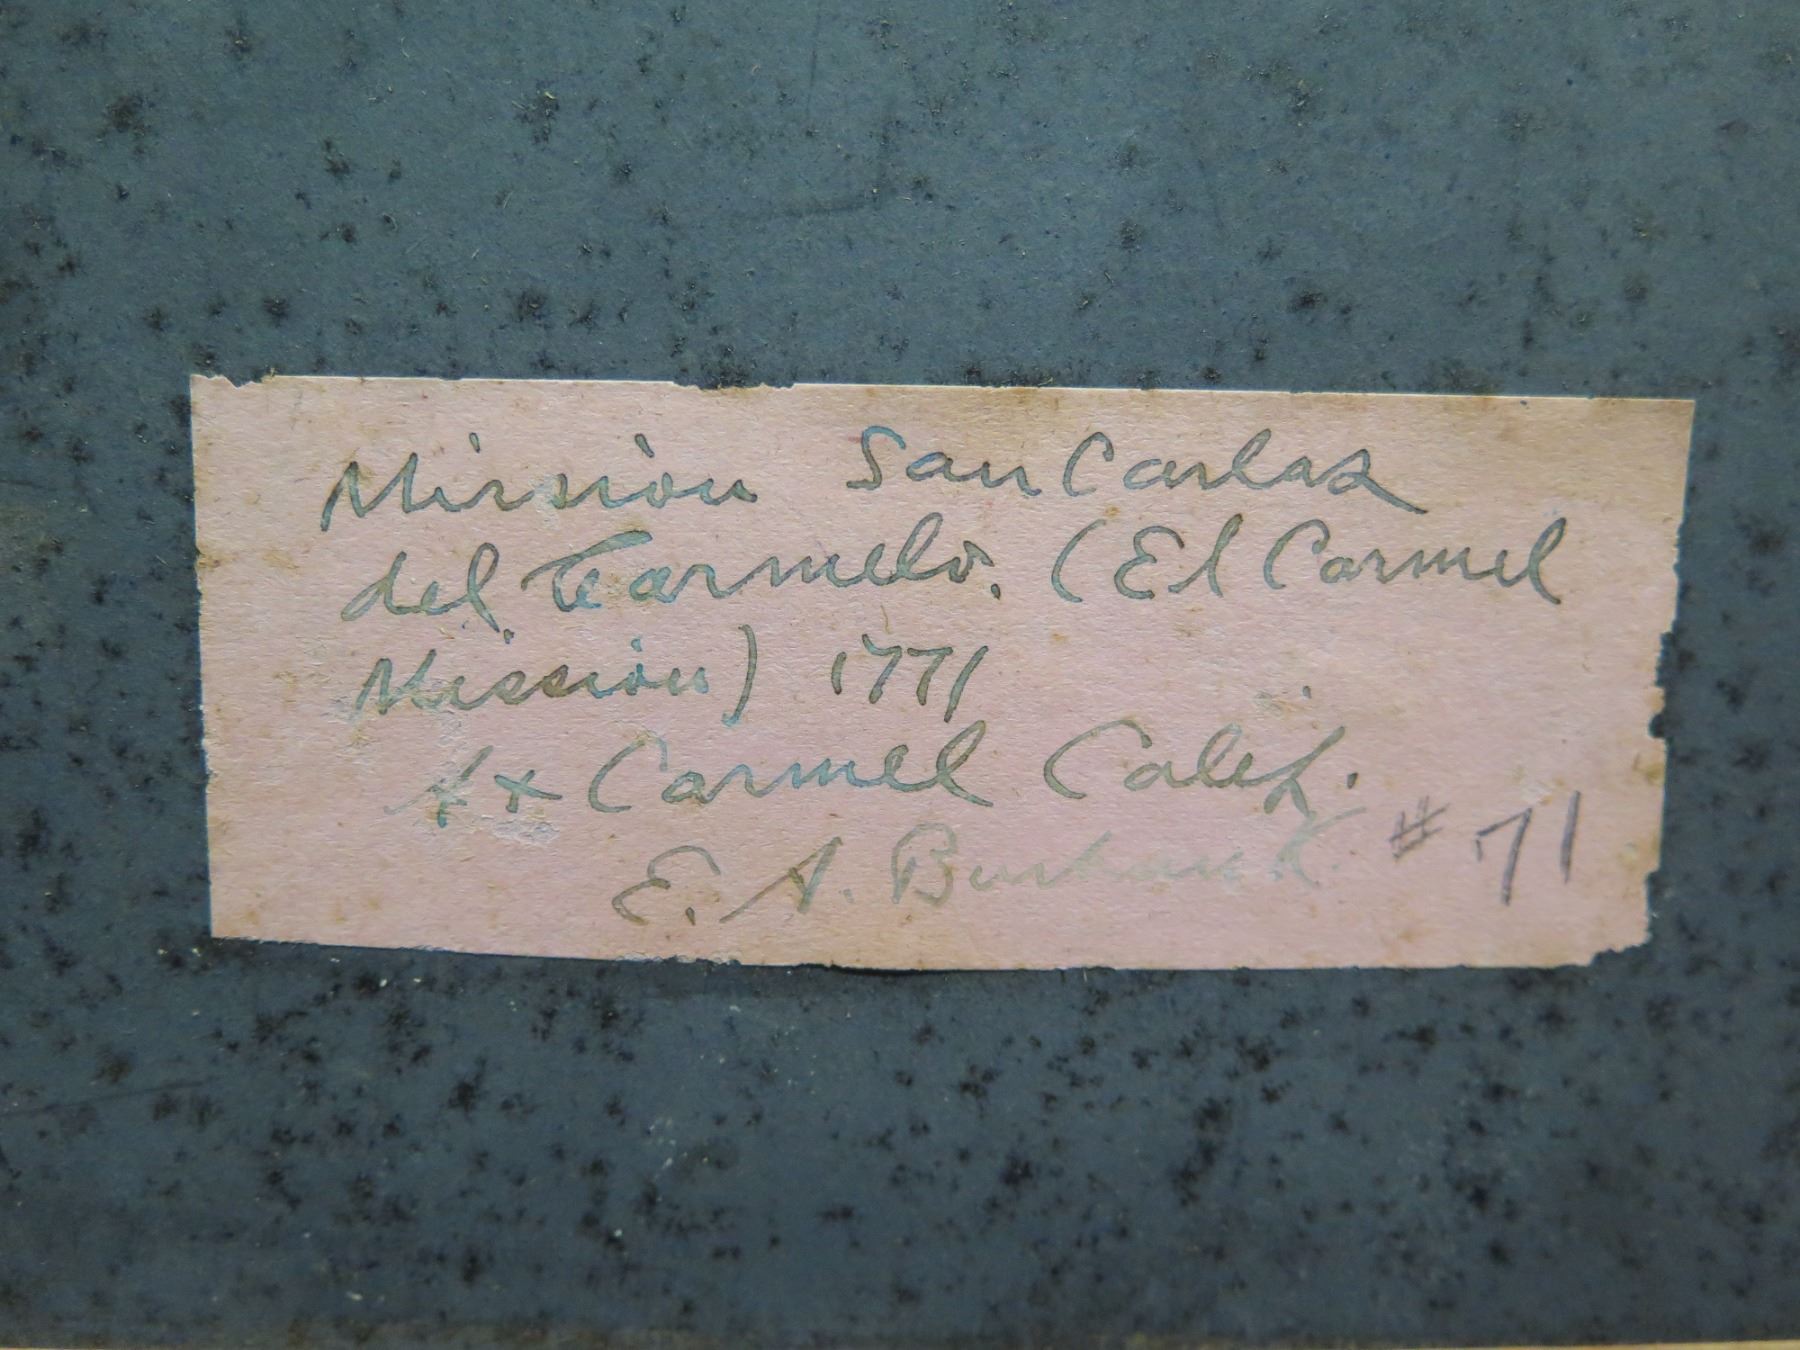 Mission San Carlos
del Carmelo. (El Carmel
Mission) 1771
At Carmel Calif.
E. A. Burbank. # 71